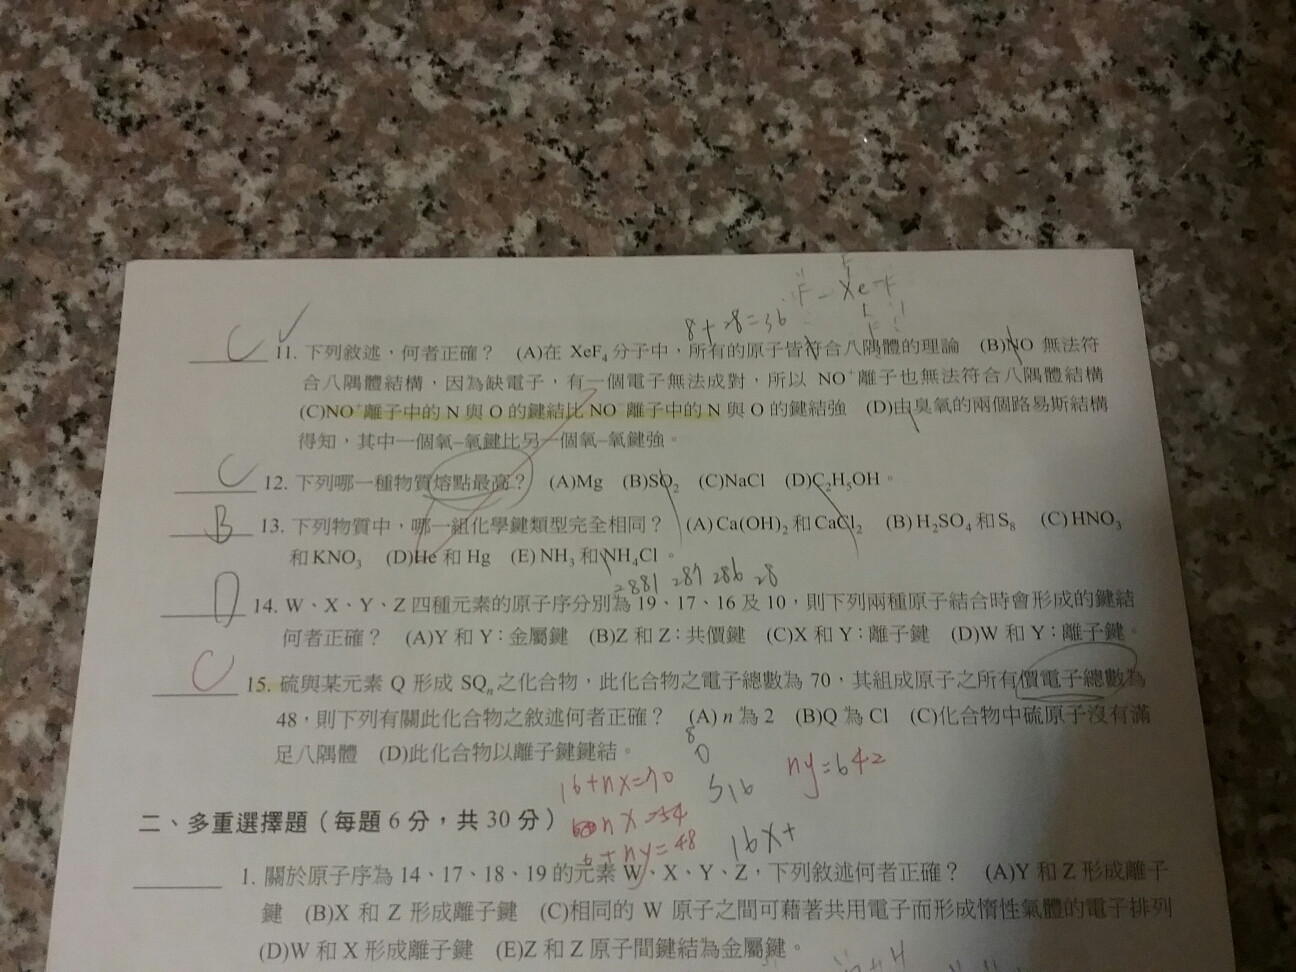 F – Xe – F
8+28=36
C ✓ 11. 下列敘述，何者正確？ (A)在 XeF₄ 分子中，所有的原子皆符合八隅體的理論 (B)NO 無法符
合八隅體結構，因為缺電子，有一個電子無法成對，所以 NO⁺離子也無法符合八隅體結構
(C)NO⁺離子中的 N 與 O 的鍵結比 NO⁻離子中的 N 與 O 的鍵結強 (D)由臭氧的兩個路易斯結構
得知，其中一個氧–氧鍵比另一個氧–氧鍵強。
C 12. 下列哪一種物質熔點最高？ (A)Mg (B)SO₂ (C)NaCl (D)C₂H₅OH。
B 13. 下列物質中，哪一組化學鍵類型完全相同？ (A)Ca(OH)₂ 和 CaCl₂ (B)H₂SO₄ 和 S₈ (C)HNO₃
和 KNO₃ (D)He 和 Hg (E)NH₃ 和 NH₄Cl。
2881 287 286 28
D 14. W、X、Y、Z 四種元素的原子序分別為 19、17、16 及 10，則下列兩種原子結合時會形成的鍵結
何者正確？ (A)Y 和 Y：金屬鍵 (B)Z 和 Z：共價鍵 (C)X 和 Y：離子鍵 (D)W 和 Y：離子鍵。
C 15. 硫與某元素 Q 形成 SQₙ 之化合物，此化合物之電子總數為 70，其組成原子之所有價電子總數為
48，則下列有關此化合物之敘述何者正確？ (A) n 為 2 (B)Q 為 Cl (C)化合物中硫原子沒有滿
足八隅體 (D)此化合物以離子鍵鍵結。
8
O
16+nx=70 S16 ny=642
nx=54
6+ny=48 16x+
二、多重選擇題（每題 6 分，共 30 分）
1. 關於原子序為 14、17、18、19 的元素 W、X、Y、Z，下列敘述何者正確？ (A)Y 和 Z 形成離子
鍵 (B)X 和 Z 形成離子鍵 (C)相同的 W 原子之間可藉著共用電子而形成惰性氣體的電子排列
(D)W 和 X 形成離子鍵 (E)Z 和 Z 原子間鍵結為金屬鍵。